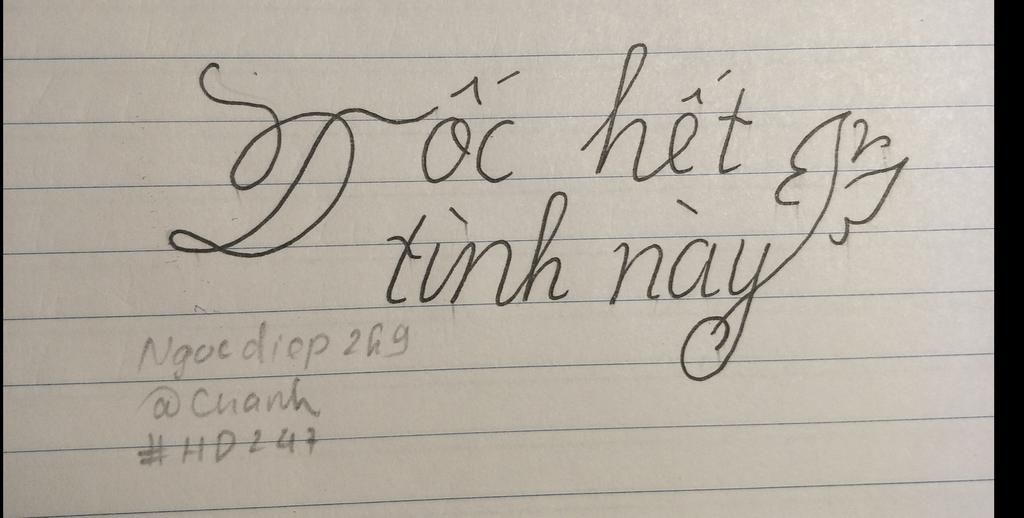 Dốc hết
tình này
Ngocdiep2k9
@Cuanh
#HD247